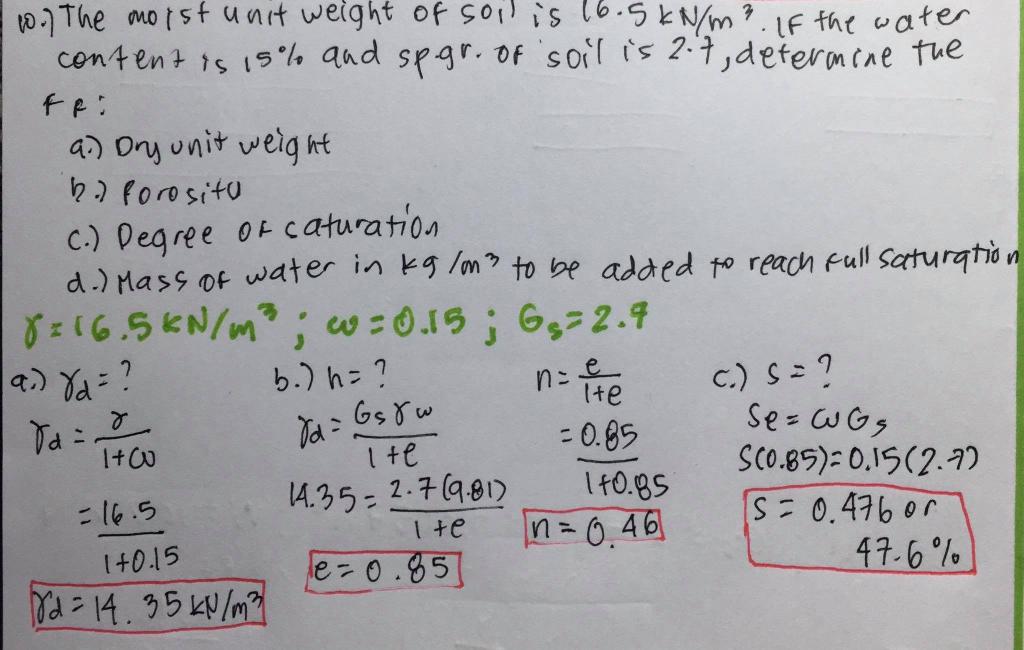 10.) The moist unit weight of soil is 16.5 kN/m³. If the water
content is 15% and sp.gr. of soil is 2.7, determine the
ff:
a.) Dry unit weight
b.) Porosity
c.) Degree of caturation
d.) Mass of water in kg/m³ to be added to reach full saturation
γ = 16.5 kN/m³ ; ω = 0.15 ; Gs = 2.7
a.) γd = ?
γd = γ / 1+ω
= 16.5 / 1+0.15
γd = 14.35 kN/m³
b.) n = ?
γd = Gsγw / 1+e
14.35 = 2.7(9.81) / 1+e
e = 0.85
n = e / 1+e
= 0.85 / 1+0.85
n = 0.46
c.) S = ?
Se = ωGs
S(0.85) = 0.15(2.7)
S = 0.476 or
47.6%